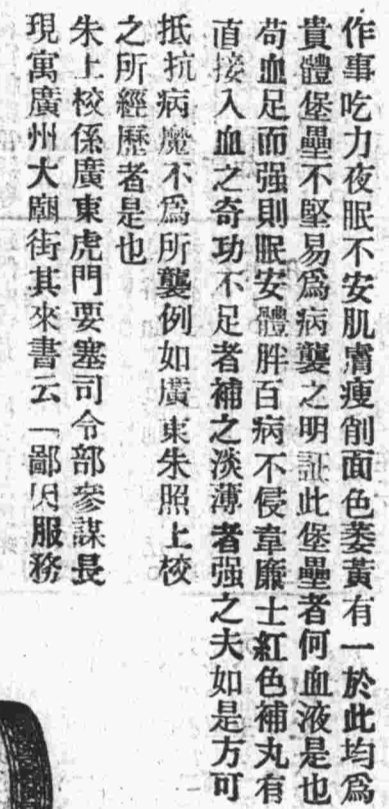 作事吃力夜眠不安肌膚瘦削面色萎黃有一於此均爲
貴體堡壘不堅易爲病襲之明証此堡壘者何血液是也
苟血足而强則眠安體胖百病不侵韋廉士紅色補丸有
直接入血之奇功不足者補之淡薄者强之夫如是方可
抵抗病魔不爲所襲例如廣東朱照上校
之所經歷者是也
朱上校係廣東虎門要塞司令部參謀長
現寓廣州大廟街其來書云「鄙因服務